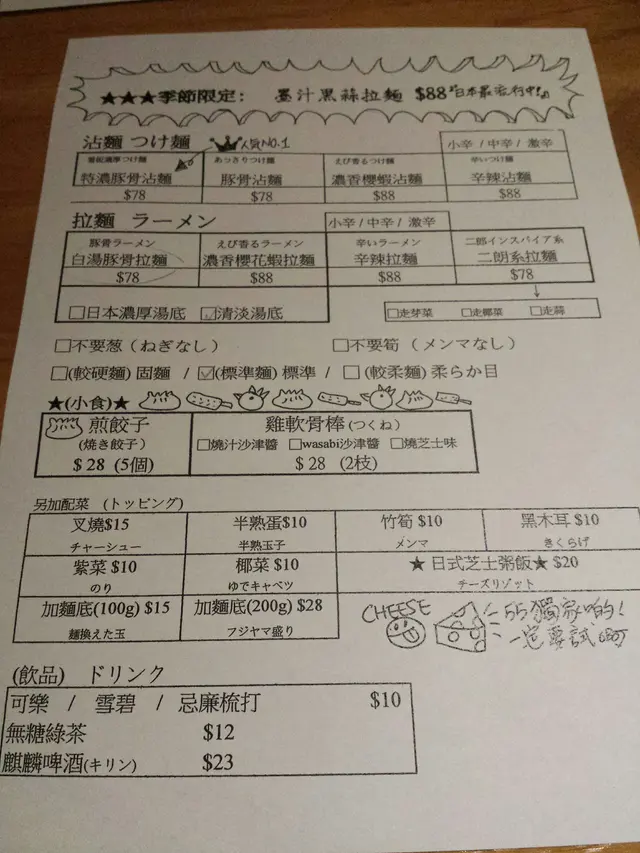 ★★★季節限定： 墨汁黑蒜拉麵 $88『日本最流行中!』
沾麵 つけ麺 人気NO.1 小辛 / 中辛 / 激辛
あっさりつけ麵 えび香るつけ麵 辛いつけ麵
特濃豚骨沾麵 豚骨沾麵 濃香櫻蝦沾麵 辛辣沾麵
$78 $78 $88 $88
拉麵 ラーメン 小辛 / 中辛 / 激辛
豚骨ラーメン えび香るラーメン 辛いラーメン 二郎インスパイア系
白湯豚骨拉麵 濃香櫻花蝦拉麵 辛辣拉麵 二朗系拉麵
$78 $88 $88 $78
□日本濃厚湯底 ☑清淡湯底 □走芽菜 □走椰菜 □走蒜
□不要葱（ねぎなし） □不要筍（メンマなし）
□(較硬麵) 固麵 / ☑(標準麵) 標準 / □ (較柔麵) 柔らか目
★(小食)★
煎餃子 雞軟骨棒(つくね)
(焼き餃子) □燒汁沙津醬 □wasabi沙津醬 □燒芝士味
$ 28 (5個) $ 28 (2枝)
另加配菜 (トッピング)
叉燒$15 半熟蛋$10 竹筍 $10 黑木耳 $10
チャーシュー 半熟玉子 メンマ きくらげ
紫菜 $10 椰菜 $10 ★ 日式芝士粥飯★ $20
のり ゆでキャベツ チーズリゾット
加麵底(100g) $15 加麵底(200g) $28
麵換えた玉 フジヤマ盛り
CHEESE
55獨家啲!
一定要試
(飲品) ドリンク
可樂 / 雪碧 / 忌廉梳打 $10
無糖綠茶 $12
麒麟啤酒(キリン) $23